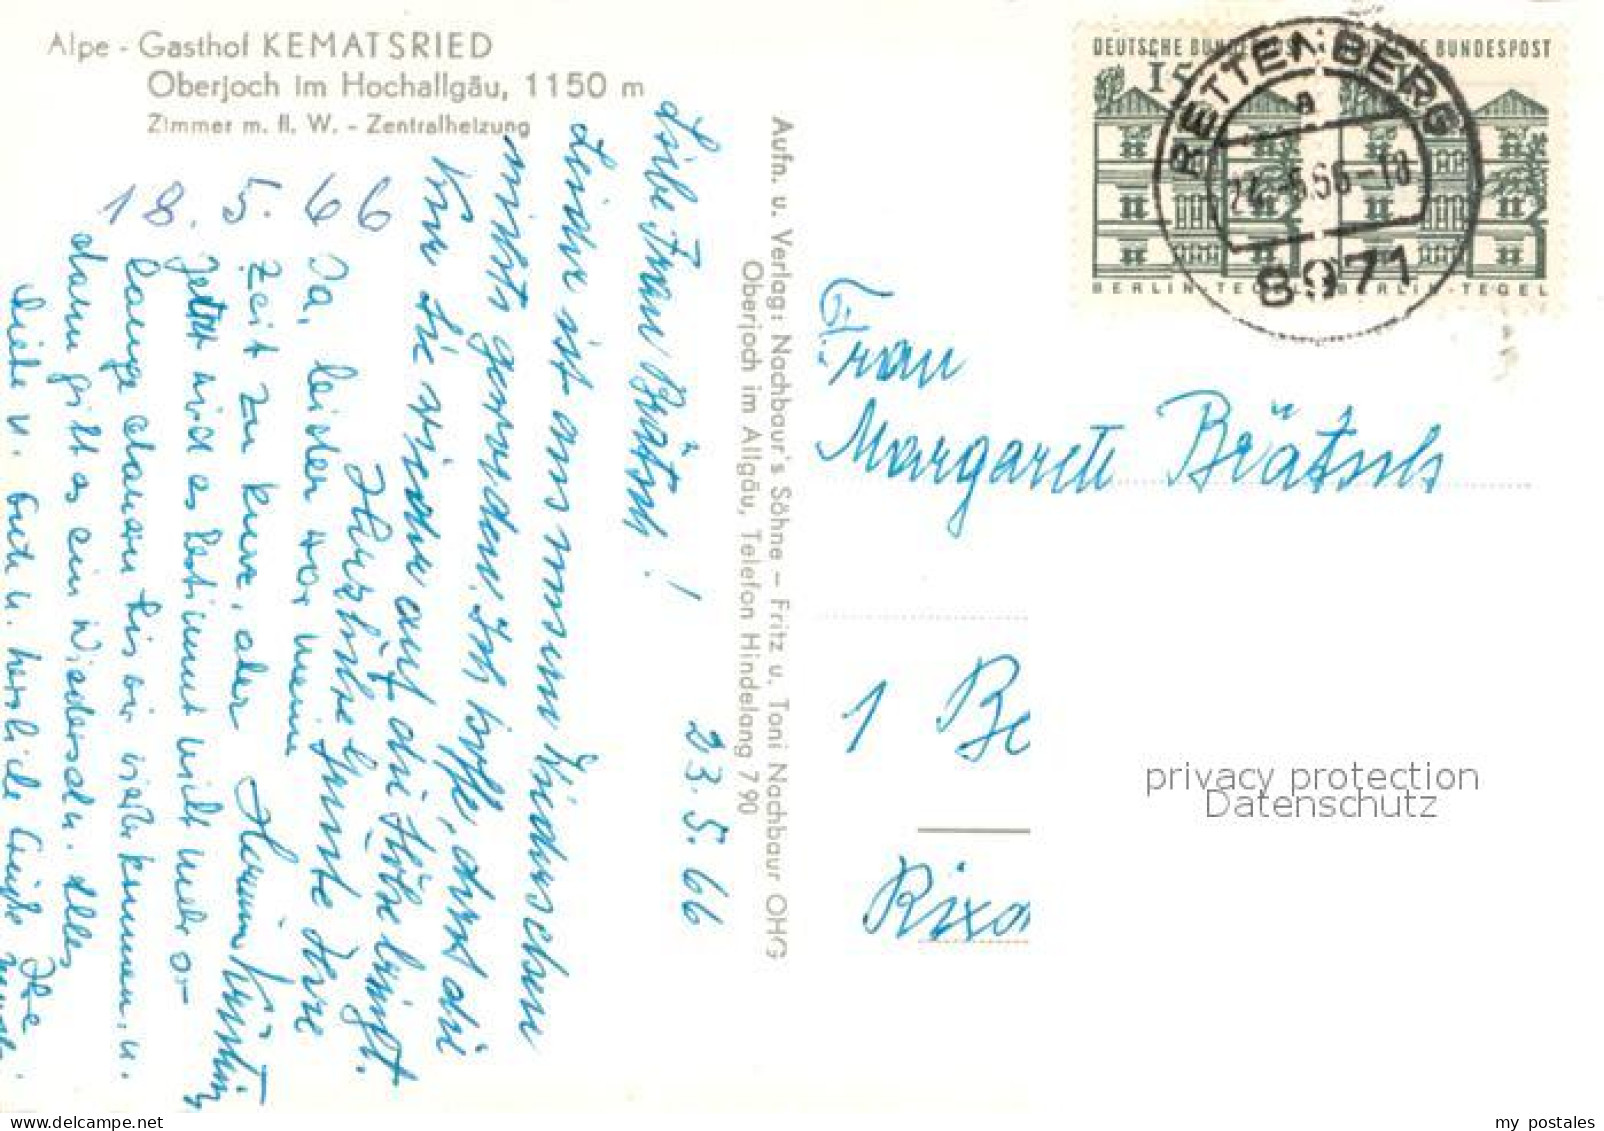 Alpe - Gasthof KEMATSRIED
Oberjoch im Hochallgäu, 1150 m
Zimmer m. fl. W. - Zentralheizung
18. 5. 66
23. 5. 66
Liebe Frau Brätsch!
Leider ist aus unserem Wiedersehen
nichts geworden. Ich hoffe, dass die
Kur Sie wieder auf die Höhe bringt.
Herzliche Grüsse Ihre
Ja, leider war meine
Zeit zu kurz, aber
Jetzt wird es bestimmt nicht mehr so
lange dauern bis wir kommen, u.
dann gibt es ein Wiederseh'n. Alles
Liebe u. Gute u. herzliche Grüße Ihre
Aufn. u. Verlag: Nachbaur's Söhne - Fritz u. Toni Nachbaur OHG
Oberjoch im Allgäu, Telefon Hindelang 790
DEUTSCHE BUNDESPOST
15
BERLIN-TEGEL
DEUTSCHE BUNDESPOST
BERLIN-TEGEL
RETTENBERG
a
24.-5.66-18
8971
Frau
Margarete Brätsch
1 Be
Rixd
privacy protection
Datenschutz
www.delcampe.net
my_postales